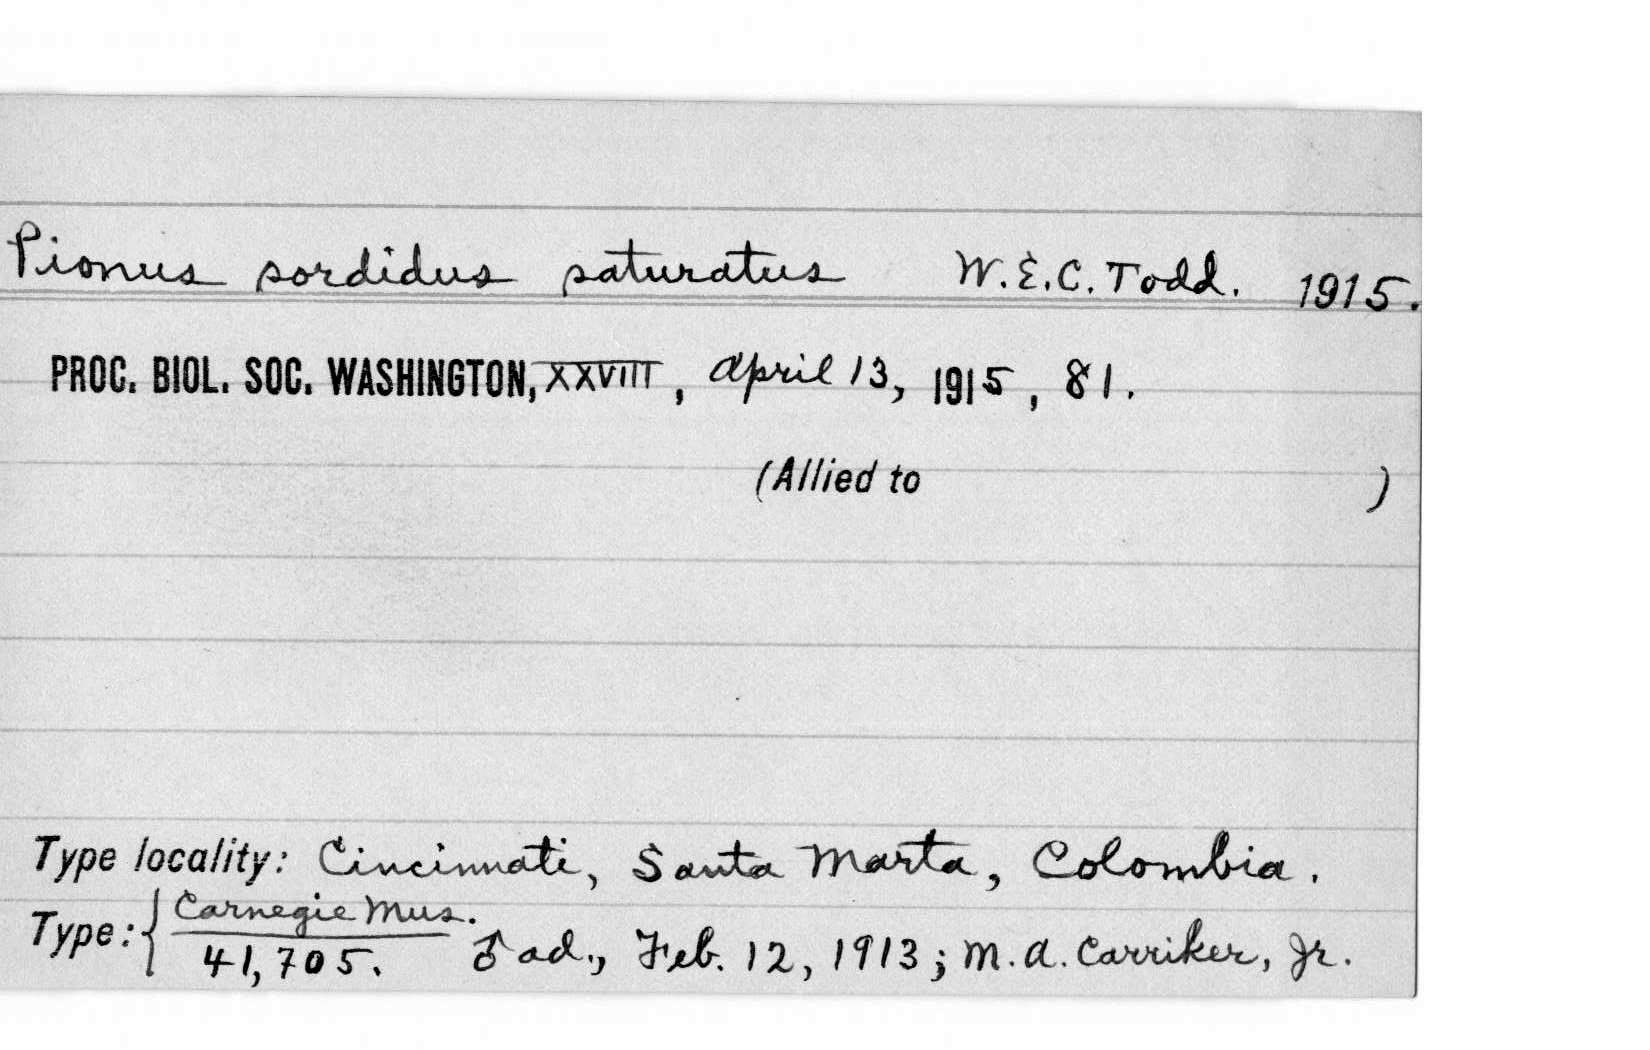 Pionus sordidus saturatus W.E.C. Todd. 1915.
PROC. BIOL. SOC. WASHINGTON, XXVIII, April 13, 1915, 81.
(Allied to )
Type locality: Cincinnati, Santa Marta, Colombia.
Type: { Carnegie Mus.
41,705. ♂ ad., Feb. 12, 1913; M. A. Carriker, Jr.